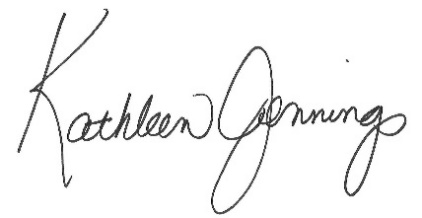 Kathleen Jennings